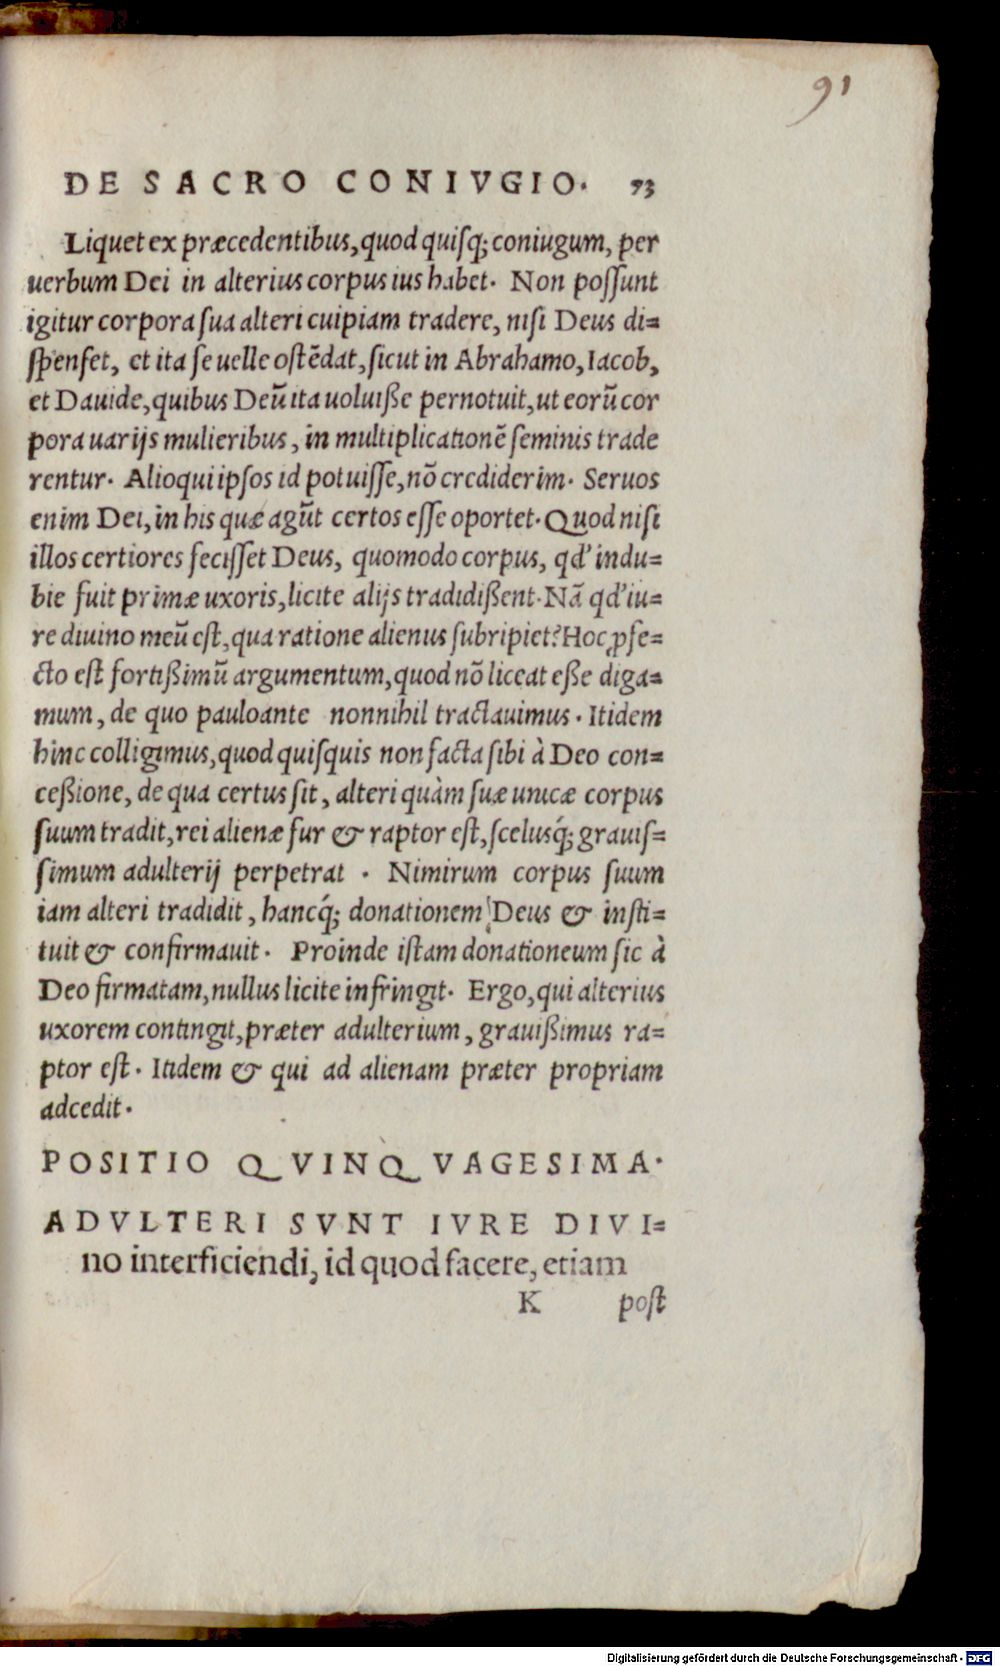 91
DE SACRO CONIVGIO. 73
Liquet ex præcedentibus, quod quisq; coniugum, per
uerbum Dei in alterius corpus ius habet. Non possunt
igitur corpora sua alteri cuipiam tradere, nisi Deus di=
spenset, et ita se uelle ostēdat, sicut in Abrahamo, Iacob,
et Dauide, quibus Deū ita uoluiße pernotuit, ut eorū cor
pora uarijs mulieribus, in multiplicationē seminis trade
rentur. Alioqui ipsos id potuisse, nō crediderim. Seruos
enim Dei, in his quæ agūt certos esse oportet. Quod nisi
illos certiores fecisset Deus, quomodo corpus, qd' indu=
bie fuit primæ uxoris, licite alijs tradidißent. Nā qd' iu=
re diuino meū est, qua ratione alienus subripiet? Hoc ꝓfe=
cto est fortißimū argumentum, quod nō liceat eße diga=
mum, de quo pauloante nonnihil tractauimus. Itidem
hinc colligimus, quod quisquis non facta sibi à Deo con=
ceßione, de qua certus sit, alteri quàm suæ unicæ corpus
suum tradit, rei alienæ fur & raptor est, scelusq́; grauis=
simum adulterij perpetrat. Nimirum corpus suum
iam alteri tradidit, hancq́; donationem Deus & insti=
tuit & confirmauit. Proinde istam donationeum sic à
Deo firmatam, nullus licite infringit. Ergo, qui alterius
uxorem contingit, præter adulterium, grauißimus ra=
ptor est. Itidem & qui ad alienam præter propriam
adcedit.
POSITIO QVINQVAGESIMA.
ADVLTERI SVNT IVRE DIVI=
no interficiendi, id quod facere, etiam
K post
Digitalisierung gefördert durch die Deutsche Forschungsgemeinschaft - DFG